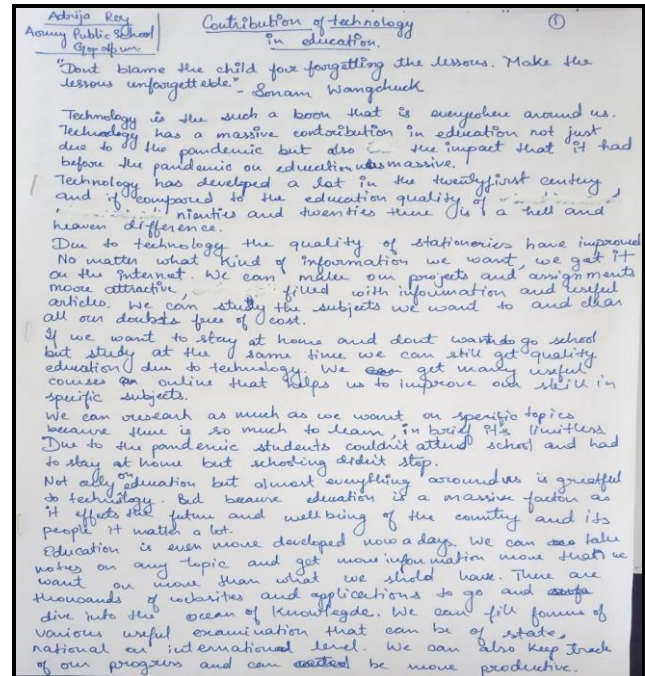 Adrija Roy
Army Public School
Gopalpur
Contribution of technology
in education.
1
"Dont blame the child for forgetting the lessons. Make the
lessons unforgetteble" - Sonam Wangchuck
Technology is the such a boon that is everywhere around us.
Technology has a massive contribution in education not just
due to the pandemic but also the impact that it had
before the pandemic on education was massive.
Technology has developed a lot in the twentyfirst century
and if compared to the education quality of
nienties and twenties there is a hell and
heaven difference.
Due to technology the quality of stationeries have improved
No matter what kind of information we want, we get it
on the internet. We can make our projects and assignments
more attractive, filled with information and useful
articles. We can study the subjects we want to and clear
all our doubts free of cost.
If we want to stay at home and dont want to go school
but study at the same time we can still get quality
education due to technology. We get many useful
courses online that helps us to improve our skill in
specific subjects.
We can research as much as we want on specific topics
because there is so much to learn, in brief its limitless.
Due to the pandemic students couldn't attend school and had
to stay at home but schooling didn't stop.
Not only on education but almost everything around us is greatful
to technology. But because education is a massive factor as
it effects the future and wellbeing of the country and its
people it matter a lot.
Education is even more developed now a days. We can take
notes on any topic and get more information more that we
want or more than what we shold have. There are
thousands of websites and applications to go and
dive into the ocean of Knowlegde. We can fill forms of
various useful examination that can be of state,
national or international level. We can also keep track
of our progress and can be more productive.